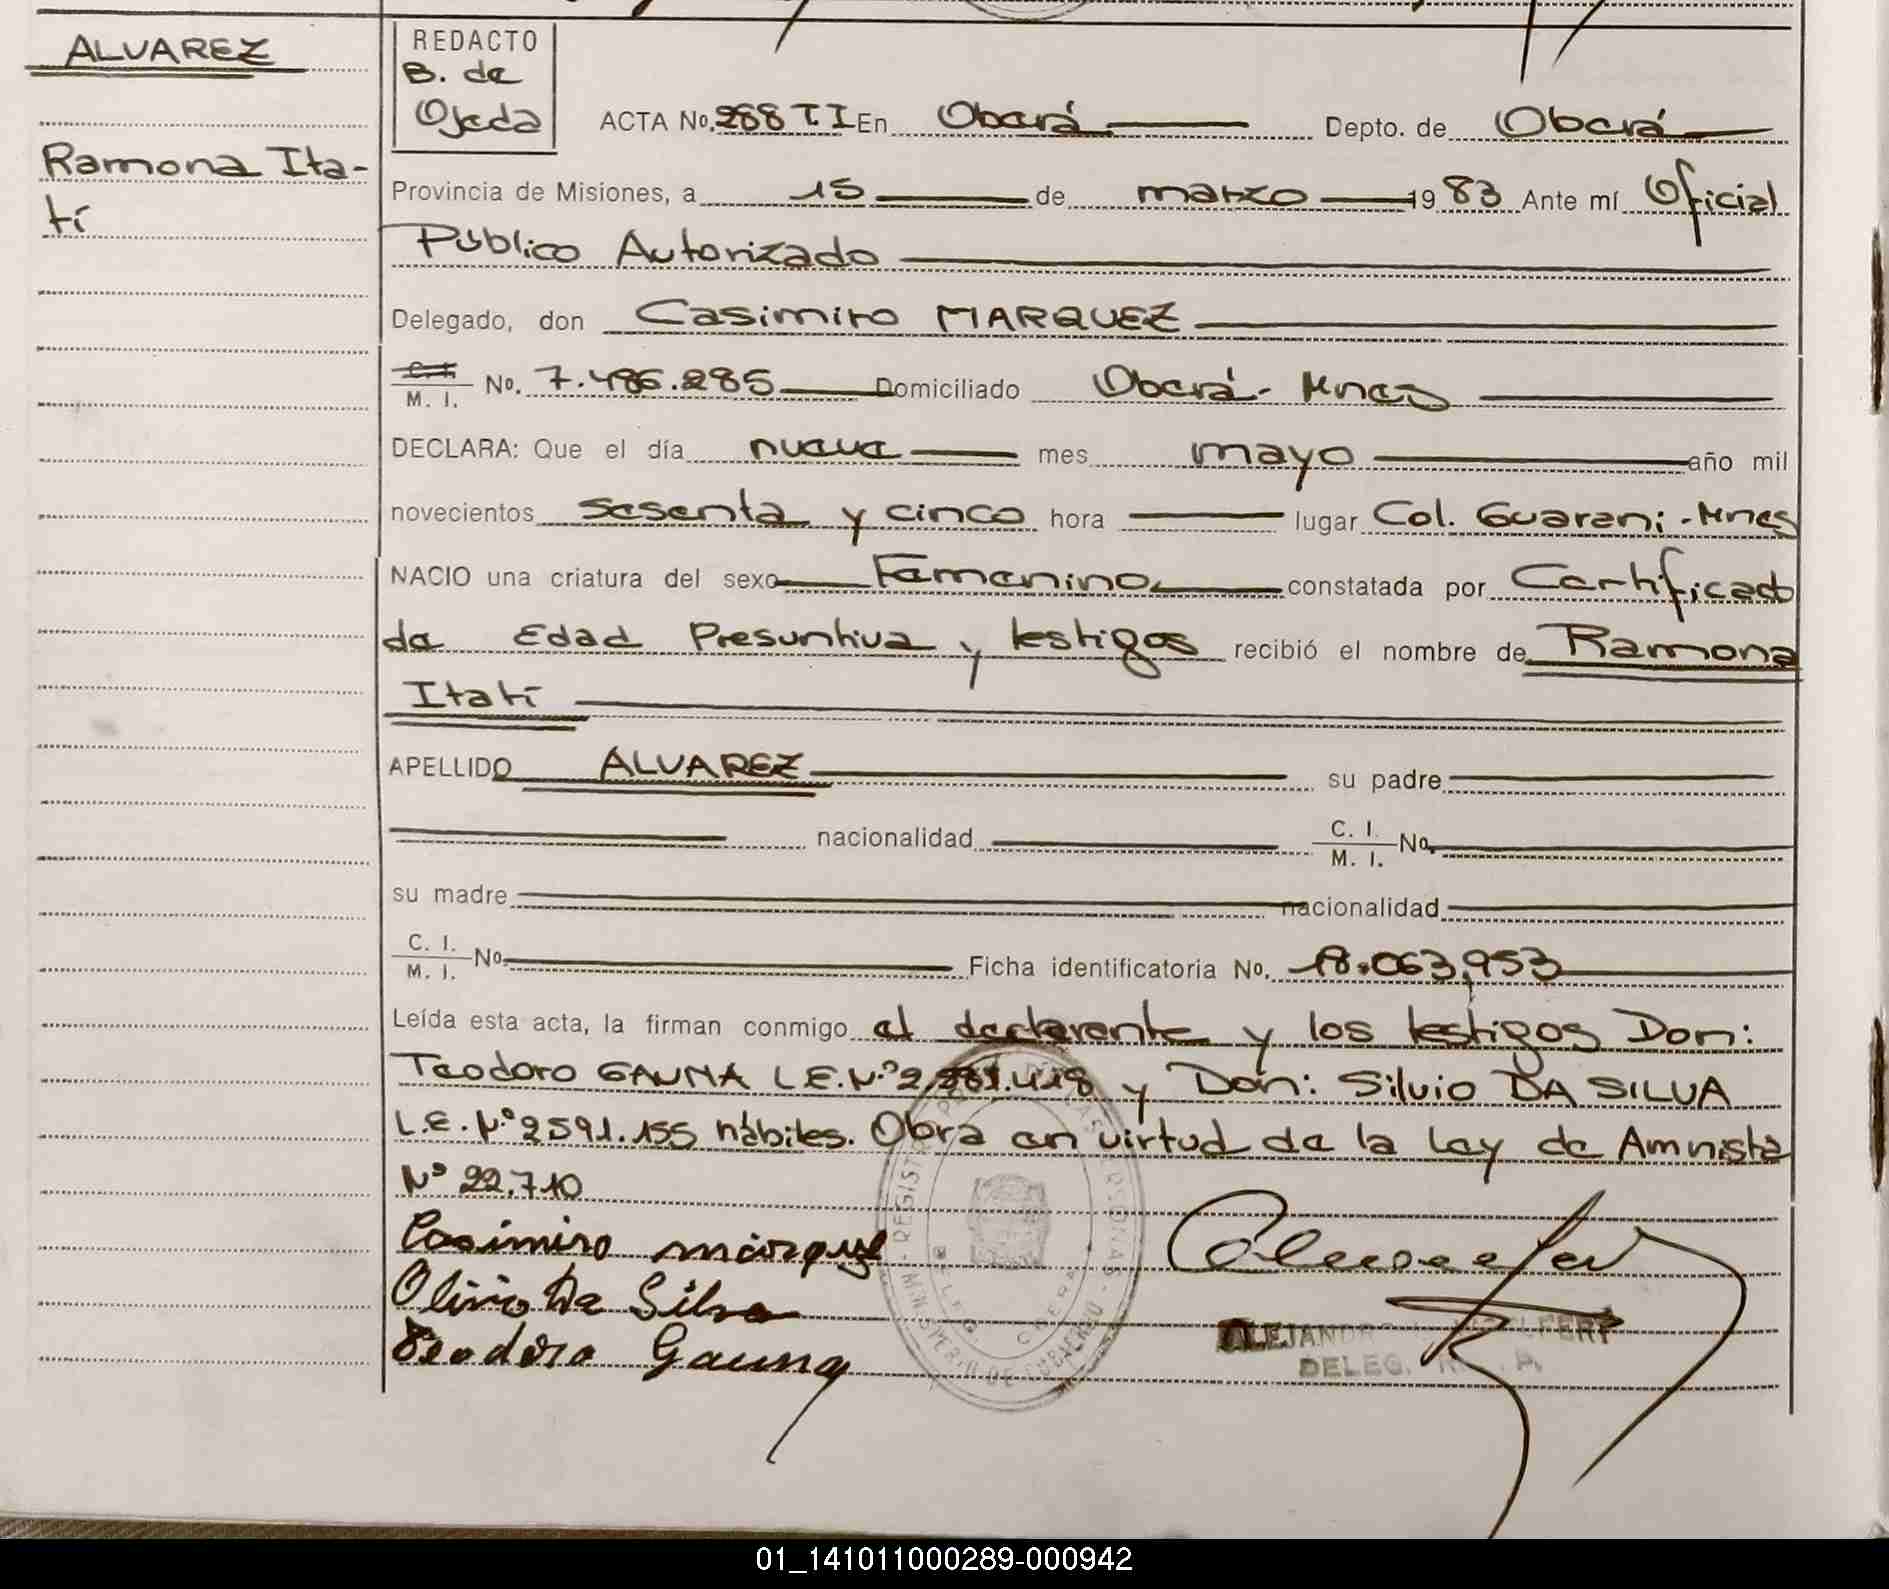 ALVAREZ
Ramona Ita-
tí
REDACTO
B. de
Ojeda
ACTA No. 288 T.I En Oberá Depto. de Oberá
Provincia de Misiones, a 15 de marzo 19 83 Ante mí Oficial
Público Autorizado
Delegado, don Casimiro MARQUEZ
C. I.
M. I. No. 7.486.285 Domiciliado Oberá - Mnes
DECLARA: Que el día nueve mes mayo año mil
novecientos sesenta y cinco hora lugar Col. Guarani - Mnes
NACIO una criatura del sexo Femenino constatada por Certificado
de Edad Presuntiva y testigos recibió el nombre de Ramona
Itatí
APELLIDO ALVAREZ su padre
nacionalidad C. I. M. I. No.
su madre nacionalidad
C. I. M. I. No. Ficha identificatoria No. 18.063.953
Leída esta acta, la firman conmigo el declarante y los testigos Don:
Teodoro GAUNA L.E. N.º 418 y Don: Silvio DA SILVA
L.E. N.º 2591.155 hábiles. Obra en virtud de la Ley de Amnista
Nº 22.710
Casimiro marquez
Olivio Da Silva
Teodoro Gauna
REGISTR PERSONAS
MINISTERIO DE GOBIERNO
DELEG. OBERA
ALEJANDRO
DELEG.
01_141011000289-000942